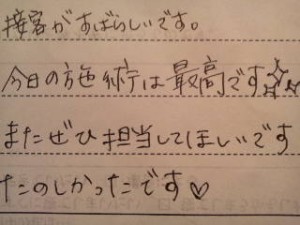 接客がすばらしいです。
今日の施術は最高です
またぜひ担当してほしいです
たのしかったです♡